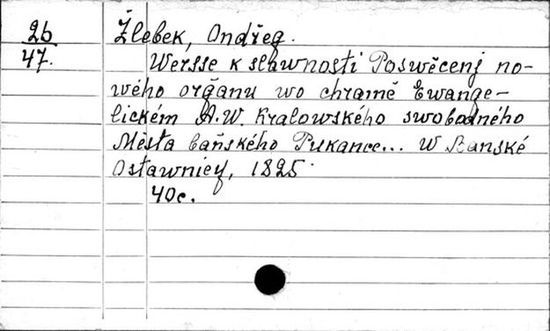 26
47.
Žlebek, Ondřeg.
Wersse k slawnosti Poswěcenj no-
wého orğanu wo chramě Ewange-
lickém A.W. Kralowského swobodného
Města baňského Pukance... W Banské
Ostawnicy, 1825.
40c.